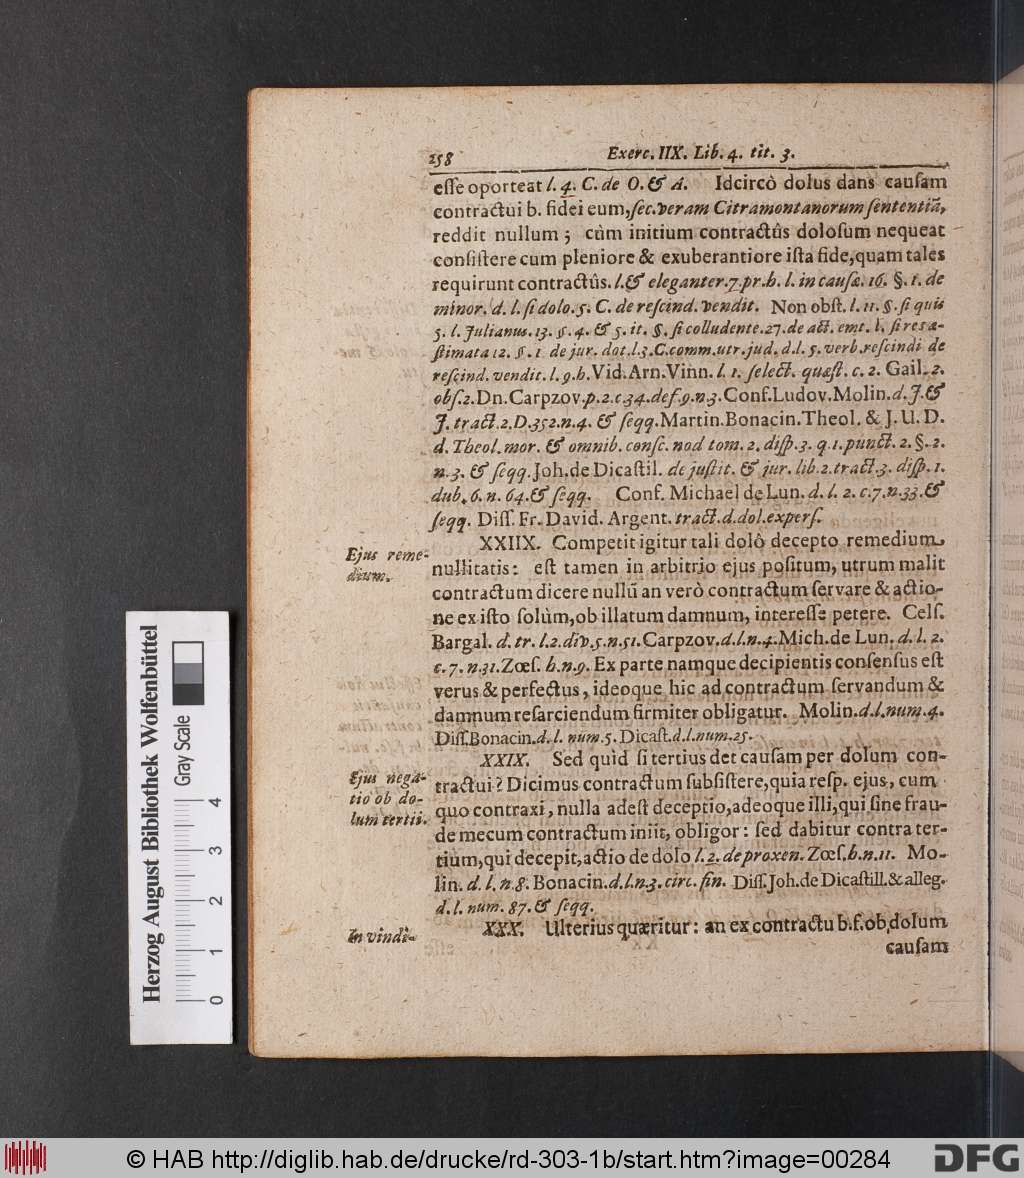 258
Exerc. IIX. Lib. 4. tit. 3.
eſſe oporteat l. 4. C. de O. & A. Idcircò dolus dans cauſam
contractui b. fidei eum, ſec. veram Citramontanorum ſententiã,
reddit nullum; cùm initium contractûs doloſum nequeat
conſiſtere cum pleniore & exuberantiore iſta fide, quam tales
requirunt contractûs. l. & eleganter. 7. pr. h. l. in cauſæ. 16. §. 1. de
minor. d. l. ſi dolo. 5. C. de reſcind. vendit. Non obſt. l. 11. §. ſi quis
5. l. Julianus. 13. §. 4. & 5. it. §. ſi colludente. 27. de act. emt. l. ſi res æ-
ſtimata 12. §. 1 de jur. dot. l. 3. C. comm. utr. jud. d. l. 5. verb. reſcindi de
reſcind. vendit. l. 9. h. Vid. Arn. Vinn. l. 1. ſelect. quæſt. c. 2. Gail. 2.
obſ. 2. Dn. Carpzov. p. 2. c 34. def. 9. n 3. Conf. Ludov. Molin. d. J. &
J. tract. 2. D. 352. n. 4. & ſeqq. Martin. Bonacin. Theol. & J. U. D.
d. Theol. mor. & omnib. conſc. nod tom. 2. diſp. 3. q. 1. punct. 2. §. 2.
n. 3. & ſeqq. Joh. de Dicaſtil. de juſtit. & jur. lib. 2. tract. 3. diſp. 1.
dub. 6. n. 64. & ſeqq. Conf. Michael de Lun. d. l. 2. c. 7. n. 33. &
ſeqq. Diſſ. Fr. David. Argent. tract. d. dol. experſ.
Ejus reme-
dium.
XXIIX. Competit igitur tali dolô decepto remedium
nullitatis: eſt tamen in arbitrio ejus poſitum, utrum malit
contractum dicere nullũ an verò contractum ſervare & actio-
ne ex iſto ſolùm, ob illatum damnum, intereſſe petere. Celſ.
Bargal. d. tr. l. 2. div. 5. n. 51. Carpzov. d. l. n. 4. Mich. de Lun. d. l. 2.
c. 7. n. 31. Zœſ. h. n. 9. Ex parte namque decipientis conſenſus eſt
verus & perfectus, ideoque hic ad contractum ſervandum &
damnum reſarciendum firmiter obligatur. Molin. d. l. num. 4.
Diſſ. Bonacin. d. l. num. 5. Dicaſt. d. l. num. 25.
Ejus nega-
tio ob do-
lum tertii.
XXIX. Sed quid ſi tertius det cauſam per dolum con-
tractui? Dicimus contractum ſubſiſtere, quia reſp. ejus, cum
quo contraxi, nulla adeſt deceptio, adeoque illi, qui ſine frau-
de mecum contractum iniit, obligor: ſed dabitur contra ter-
tium, qui decepit, actio de dolo l. 2. de proxen. Zœſ. h. n. 11. Mo-
lin. d. l. n. 8. Bonacin. d. l. n. 3. circ. fin. Diſſ. Joh. de Dicaſtill. & alleg.
d. l. num. 87. & ſeqq.
In vindi-
XXX. Ulterius quæritur: an ex contractu b. f. ob dolum
cauſam
Herzog August Bibliothek Wolfenbüttel
Gray Scale
0 1 2 3 4
© HAB http://diglib.hab.de/drucke/rd-303-1b/start.htm?image=00284
DFG